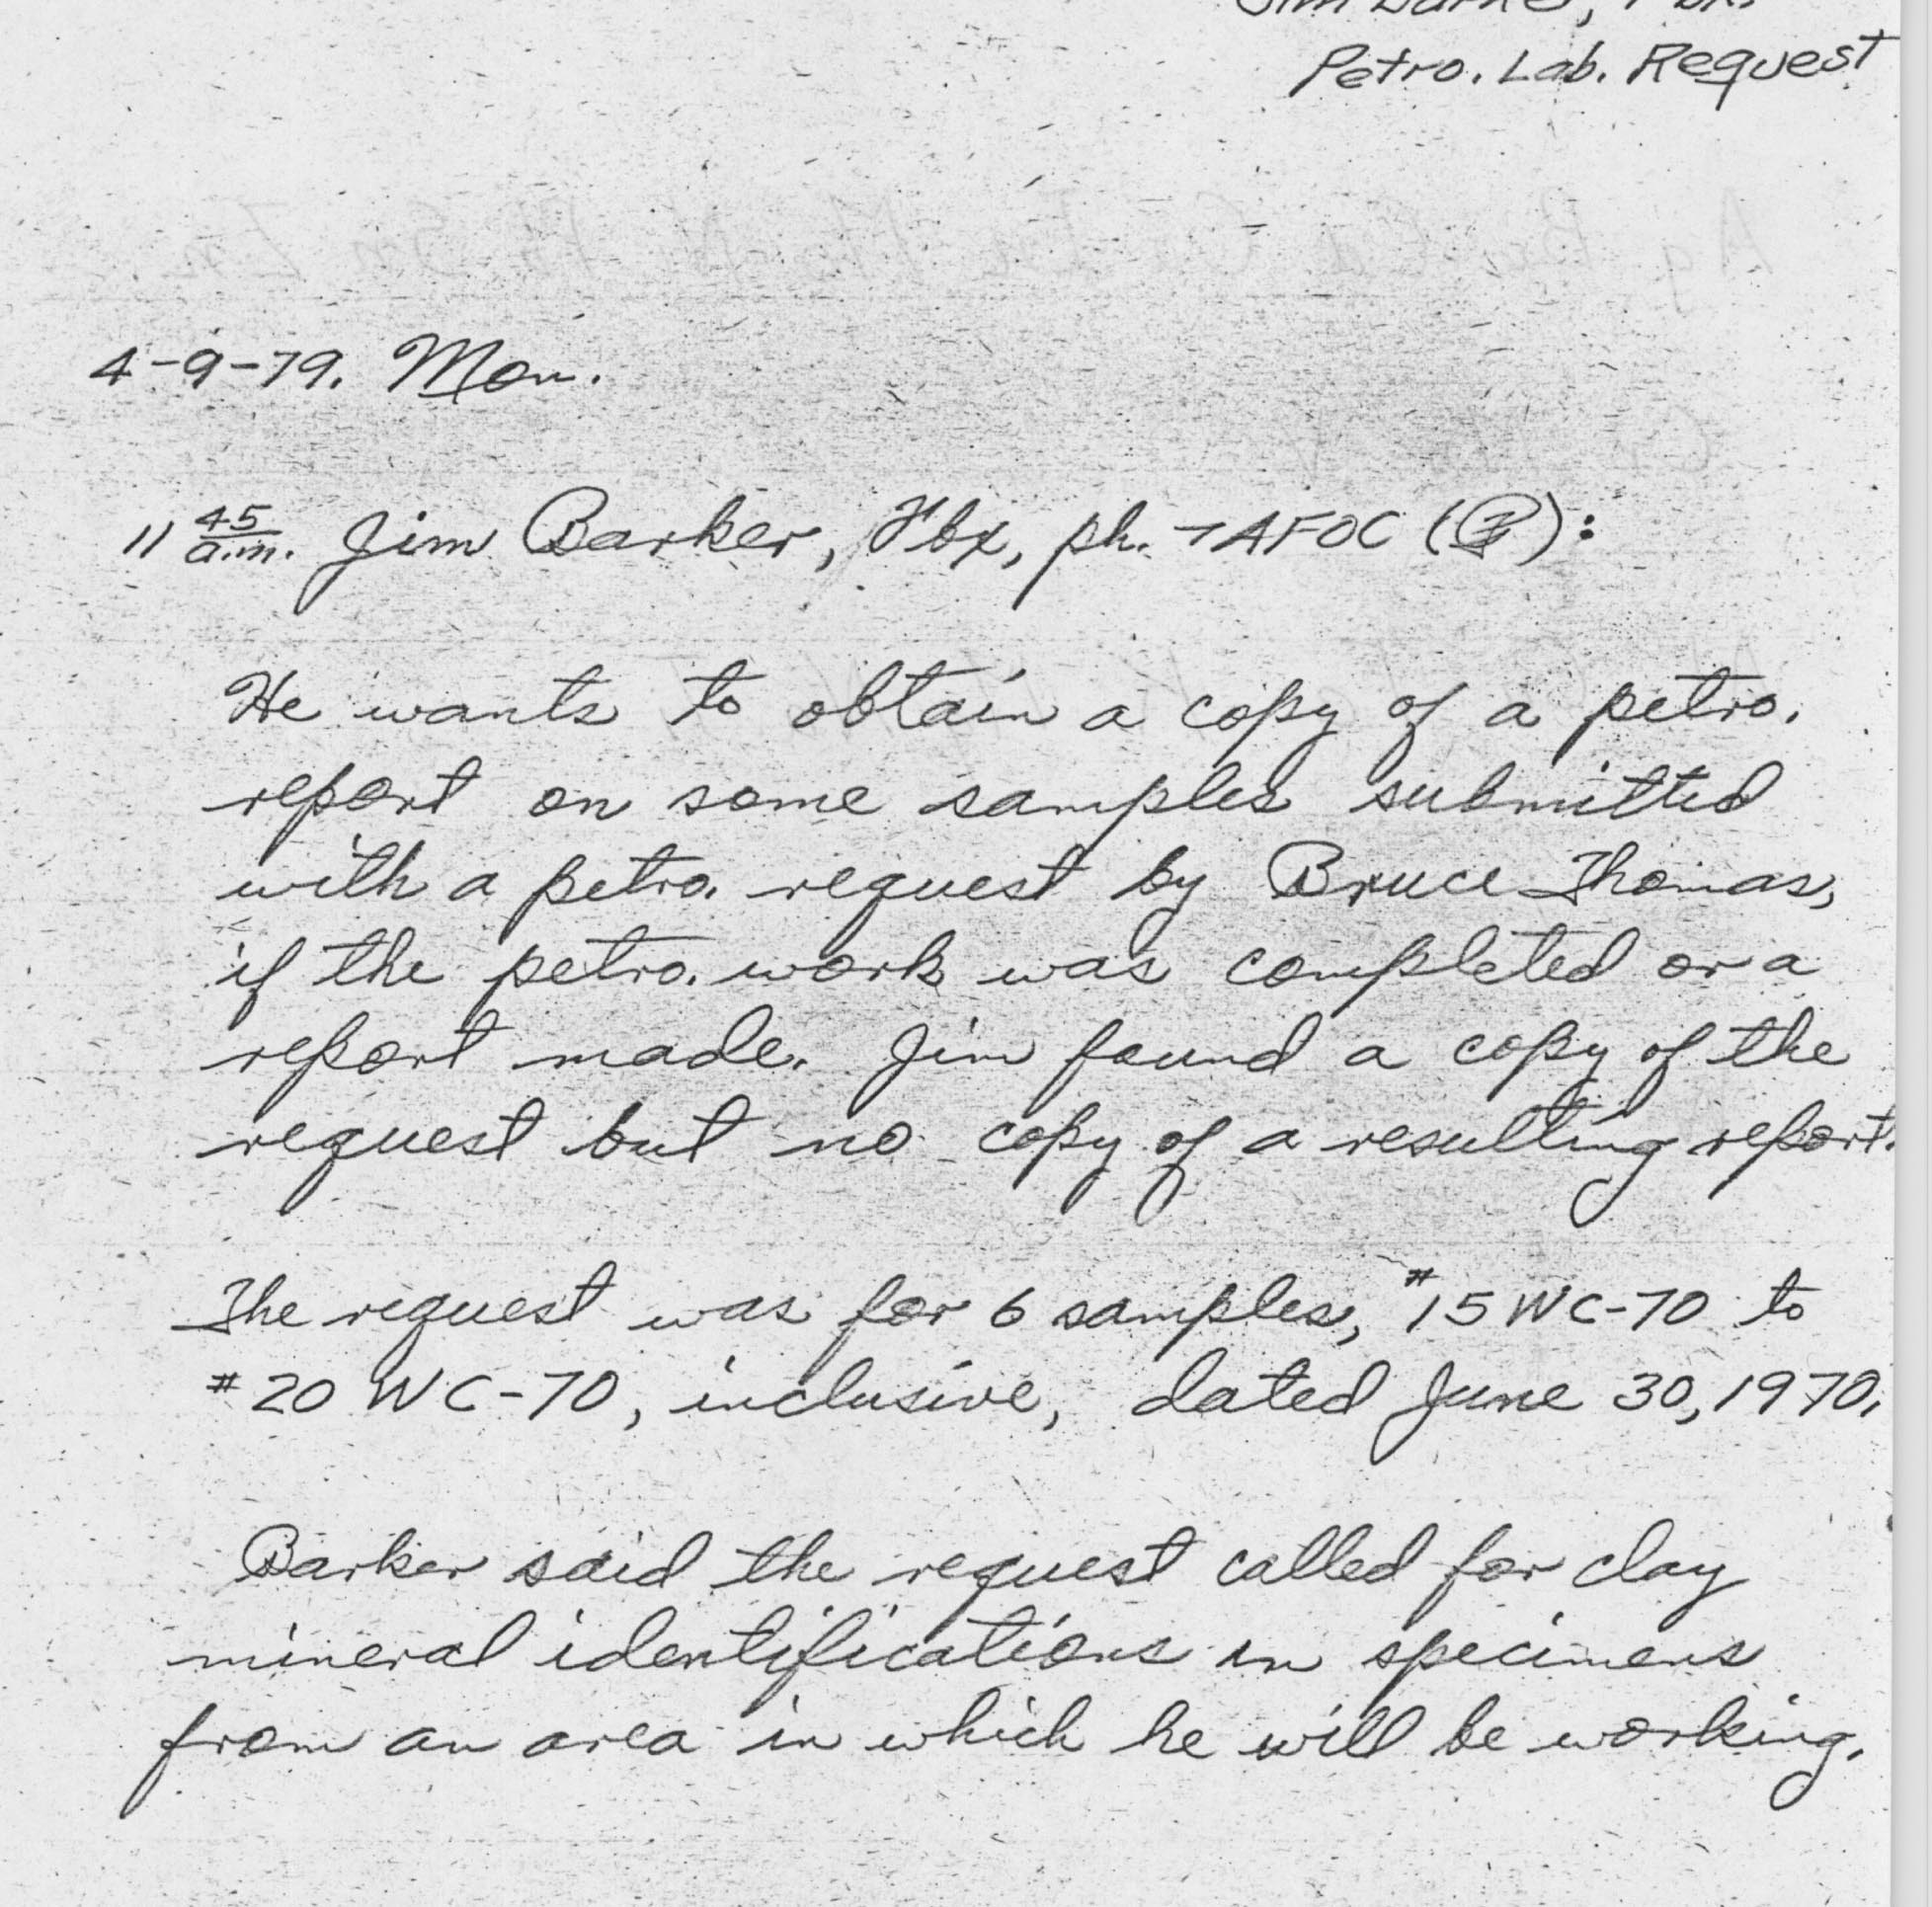 Jim Barker, Fbx.
Petro. Lab. Request
4-9-79. Mon.
11 45 a.m. Jim Barker, Fbx, ph. → AFOC ( ):
He wants to obtain a copy of a petro.
report on some samples submitted
with a petro. request by Bruce Thomas,
if the petro. work was completed or a
report made. Jim found a copy of the
request but no copy of a resulting report.
The request was for 6 samples, #15 WC-70 to
#20 WC-70, inclusive, dated June 30, 1970.
Barker said the request called for clay
mineral identifications in specimens
from an area in which he will be working.